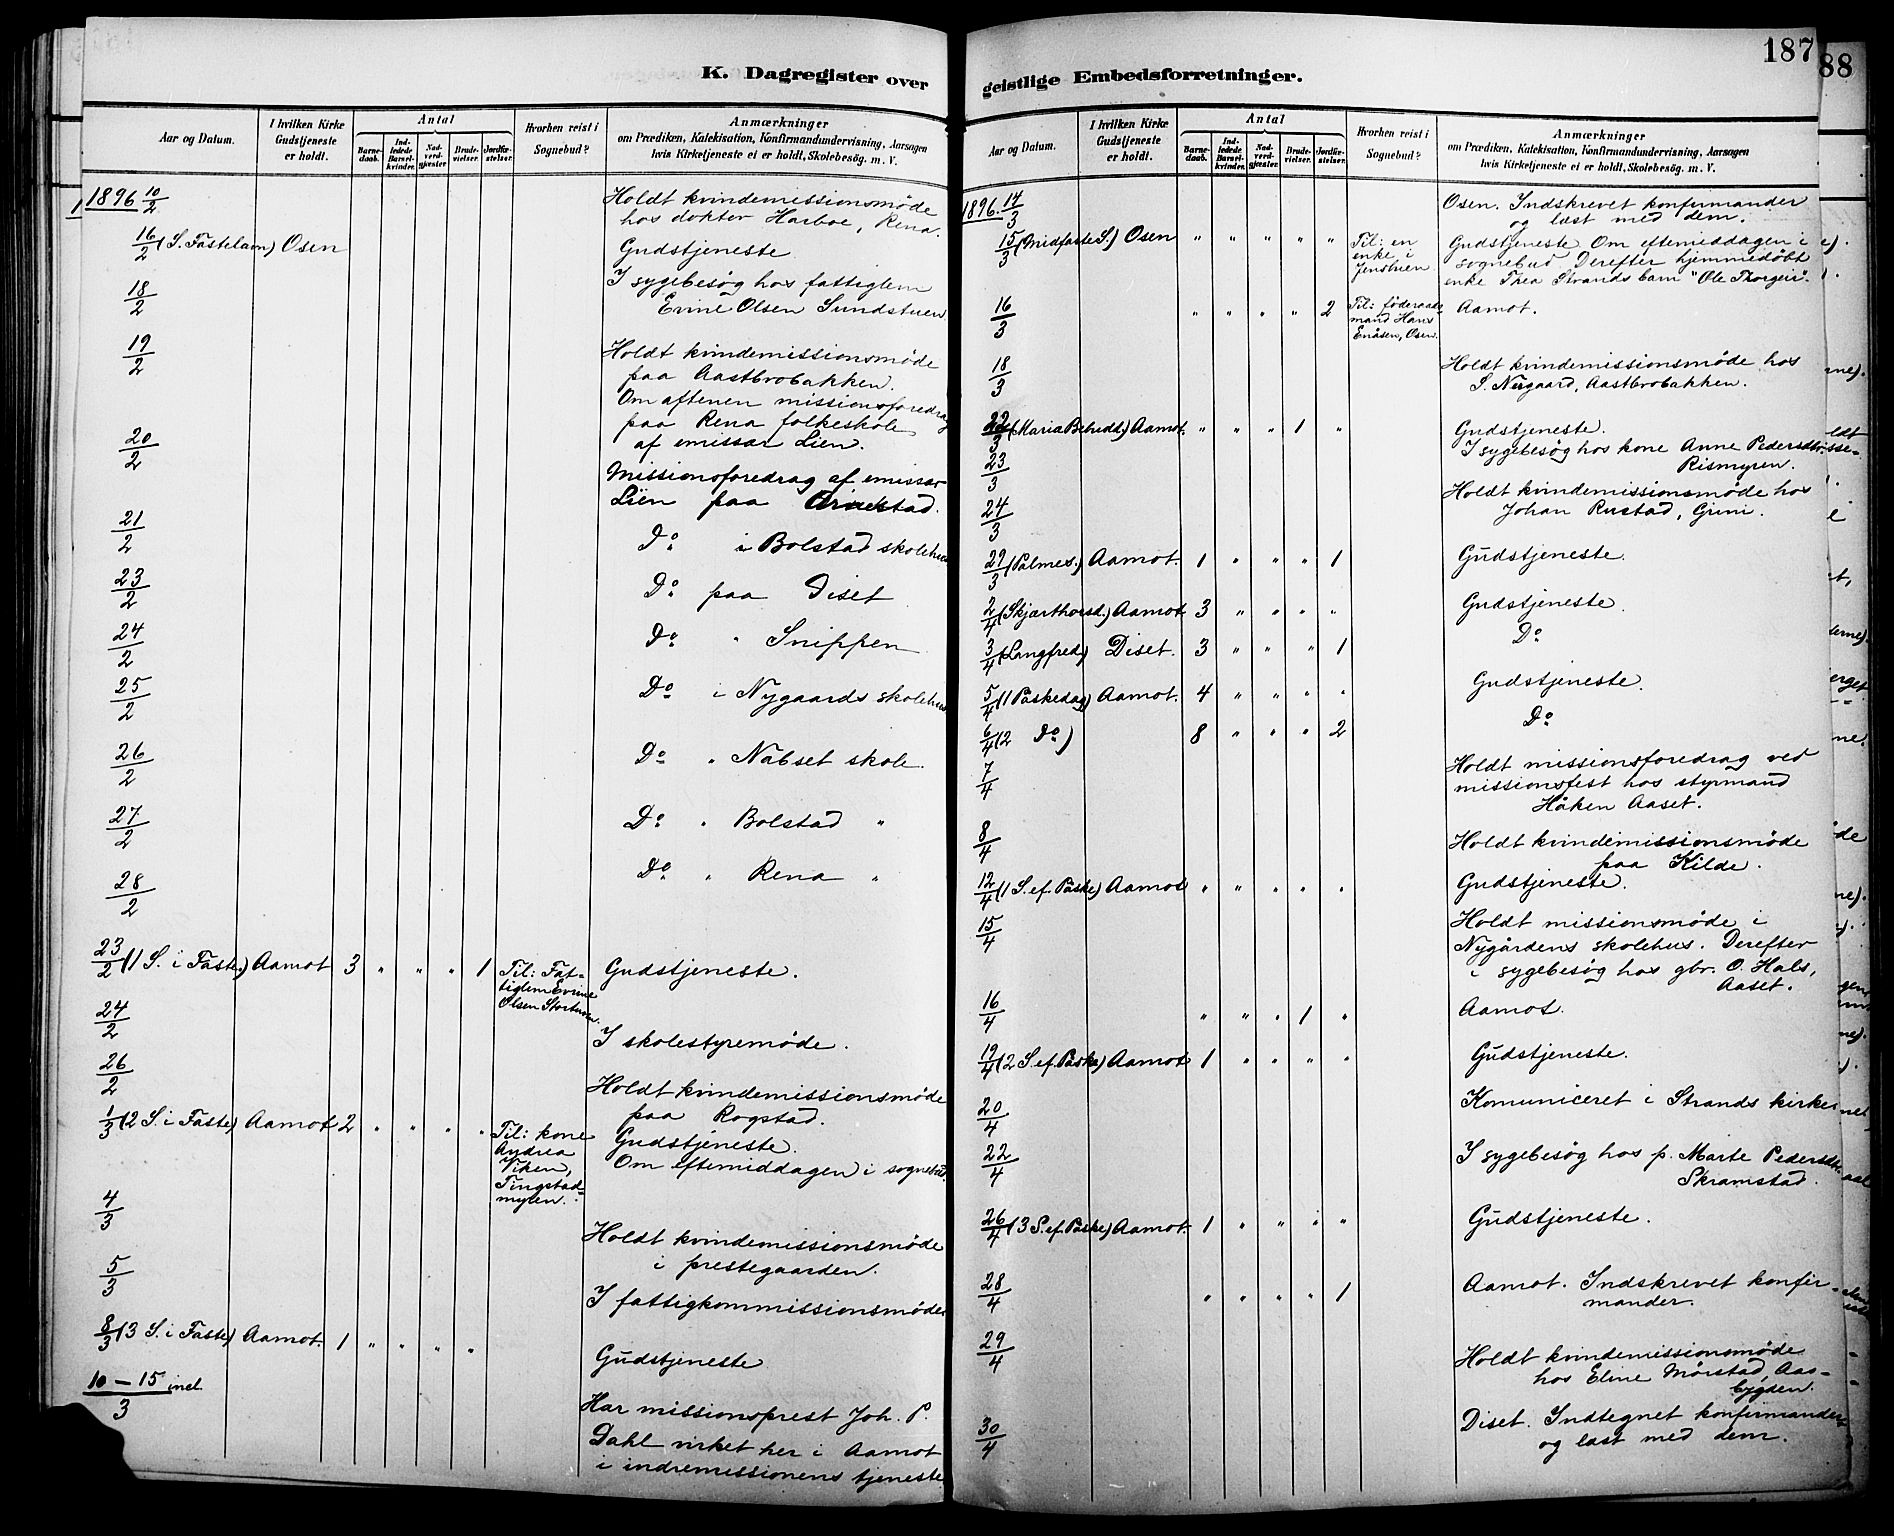 K. Dagregister over
Aar og Datum.
I hvilken Kirke Gudstjeneste er holdt.
Antal
Barnedaab.
Indledede Barselkvinder.
Nadverdgjester
Brudevielser.
Jordfæstelser.
Hvorhen reist i Sognebud?
Anmærkninger
om Prædiken, Katekisation, Konfirmandundervisning, Aarsagen
hvis Kirketjeneste ei er holdt, Skolebesög. m. V.
1896 10/2 Holdt kvindemissionsmøde
hos doktor Harboe, Rena.
16/2 (S. Fastelavn) Osen Gudstjeneste
18/2 I sygebesøg hos fattiglem
Evine Olsen Sundstuen
19/2 Holdt kvindemissionsmøde
paa Aastbrobakken.
Om aftenen missionsforedrag
paa Rena folkeskole
20/2 af emissær Lien.
Missionsforedrag af emissær
Lien paa
21/2 Do i Bolstad skolehus
23/2 Do paa Diset
24/2 Do " Snippen
25/2 Do i Nygaards skolehus
26/2 Do " Nabset skole.
27/2 Do " Bolstad "
28/2 Do " Rena "
23/2 (1 S. i Faste.) Aamot 3 " " " 1 Til: Fat- Gudstjeneste.
tiglem Evine
Olsen
24/2 I skolestyremøde.
26/2 Holdt kvindemissionsmøde
paa Rogstad.
1/3 (2 S. i Faste) Aamot 2 " " " " Til: kone Gudstjeneste.
Andrea Om eftermiddagen i sognebud.
Viken,
Tingstad-
myren.
4/3 Holdt kvindemissionsmøde
i prestegaarden.
5/3 I fattigkommissionsmøde
8/3 (3 S. i Faste) Aamot. 1 " " " " Gudstjeneste
10 – 15 incl. / 3 Har missionsprest Joh. P.
Dahl virket her i Aamot
i indremissionens tjeneste
187
88
geistlige Embedsforretninger.
Aar og Datum.
I hvilken Kirke Gudstjeneste er holdt.
Antal
Barnedaab.
Indledede Barselkvinder.
Nadverdgjester.
Brudevielser.
Jordfæstelser.
Hvorhen reist i Sognebud?
Anmærkninger
om Prædiken, Katekisation, Konfirmandundervisning, Aarsagen
hvis Kirketjeneste ei er holdt, Skolebesög. m. V.
1896. 14/3 Osen. Indskrevet konfirmander
og læst med dem.
15/3 (Midfaste S.) Osen " " " " " Til: en Gudstjeneste Om eftermiddagen i
enke i sognebud Derefter hjemmedøbt
enke Thea Strands barn "Ole Thorgeir".
16/3 " " " " 2 Til: føderaads- Aamot.
mand Hans
Enåsen, Osen.
18/3 Holdt kvindemissionsmøde hos
S. Nygaard, Aastbrobakken.
22/3 (Maria Bebudd.) Aamot. " " " 1 " Gudstjeneste.
23/3 I sygebesøg hos kone Anne Pedersdtr.
Rismyren.
24/3 Holdt kvindemissionsmøde hos
Johan Rustad, Grini.
29/3 (Palmes.) Aamot. 1 " " " 1 Gudstjeneste.
2/4 (Skjærthorsd.) Aamot 3 " " " " Gudstjeneste.
3/4 (Langfred.) Diset. 3 " " " 1 Do
5/4 (1 Påskedag) Aamot. 4 " " " " Gudstjeneste.
6/4 (2 Do) 8 " " " 2 Do
7/4 Holdt missionsforedrag ved
missionsfest hos styrmand
Håken Aaset.
8/4 Holdt kvindemissionsmøde
paa Kilde.
12/4 (1 S. ef. Påske) Aamot " " " " " Gudstjeneste.
15/4 Holdt missionsmøde i
Nygårdens skolehus. Derefter
i sygebesøg hos gbr. O. Hals,
Aaset.
16/4 " " " 1 " Aamot.
19/4 (2 S. ef. Påske) Aamot 1 " " " " Gudstjeneste.
20/4 Komuniceret i Strands kirke
22/4 I sygebesøg hos p. Marte Pedersdtr.
Skramstad.
26/4 (3 S. ef. Påske) Aamot. 1 " " " " Gudstjeneste.
28/4 " " " " 1 Aamot. Indskrevet konfir-
mander.
29/4 Holdt kvindemissionsmøde
hos Eline Mørstad, Aas-
bygden.
30/4 Diset. Indtegnet konfirmander
og læst med dem.